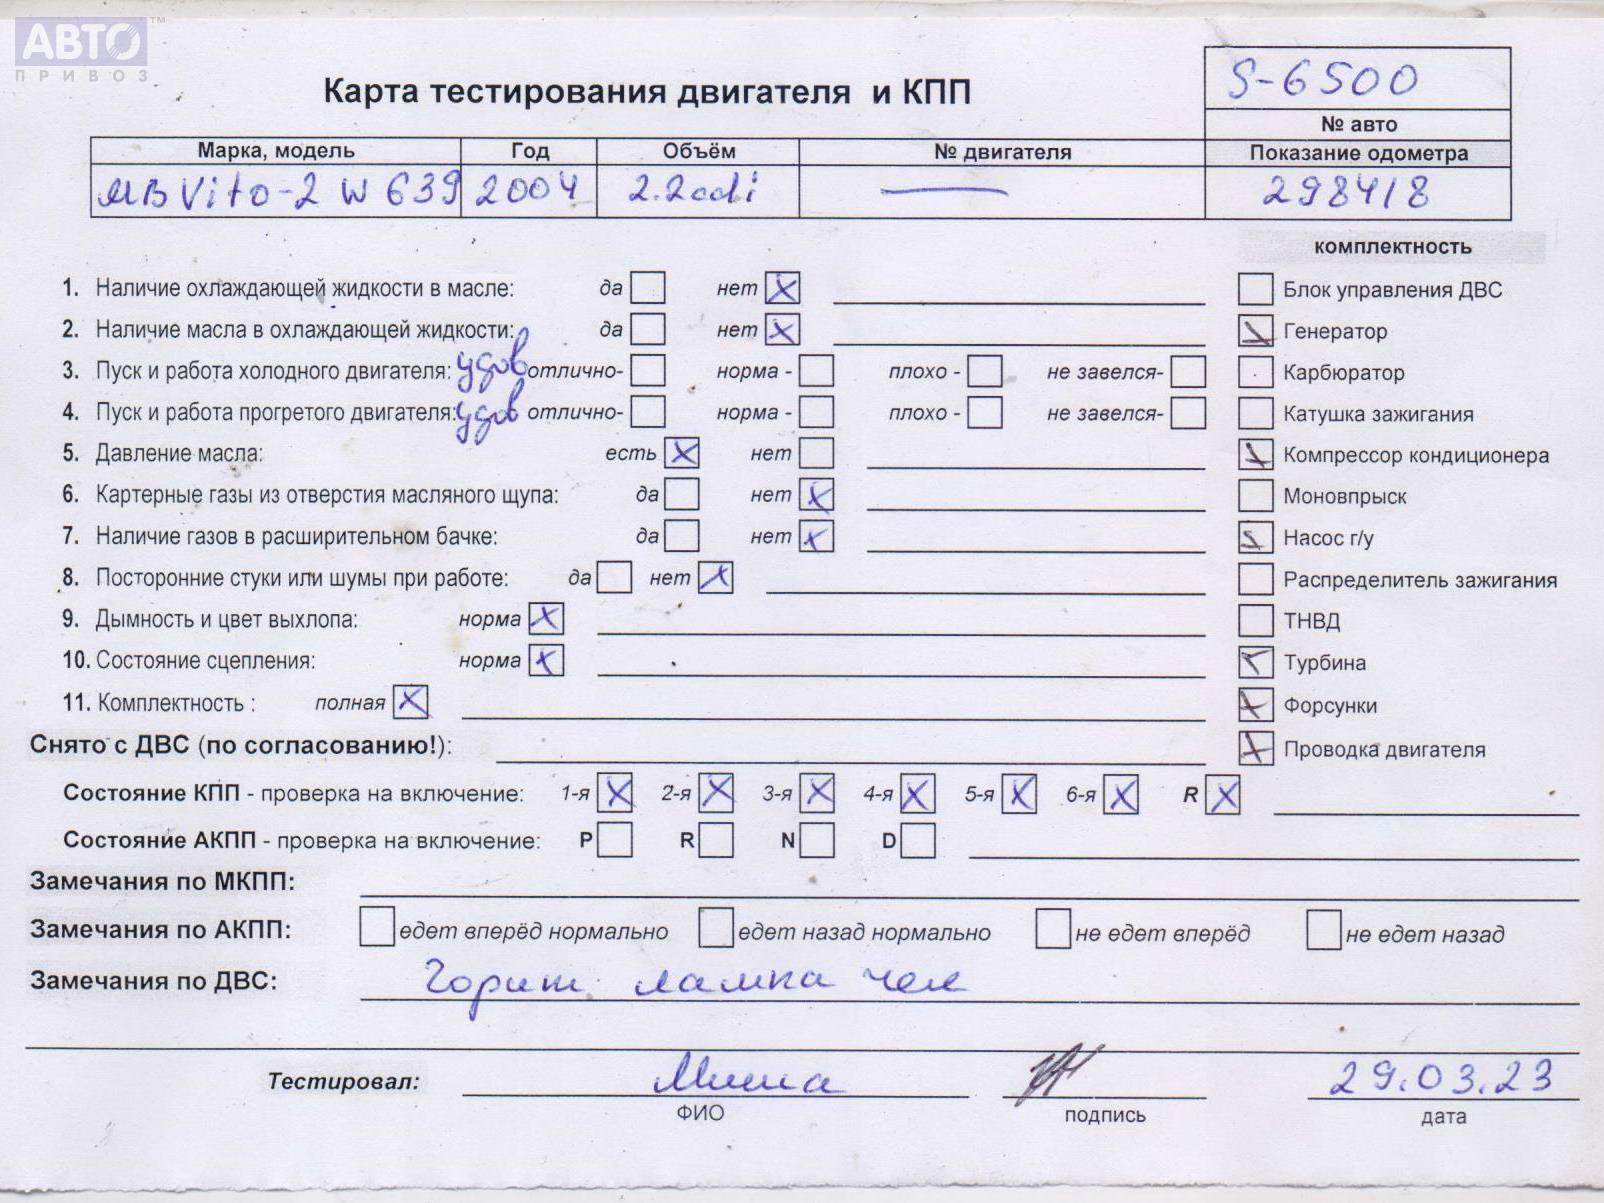 АВТО™
ПРИВОЗ
Карта тестирования двигателя и КПП
S-6500
№ авто
Марка, модель Год Объём № двигателя Показание одометра
MB Vito-2 W 639 2004 2.2cdi — 298418
комплектность
1. Наличие охлаждающей жидкости в масле: да нет X
Блок управления ДВС
2. Наличие масла в охлаждающей жидкости: да нет X
Генератор
3. Пуск и работа холодного двигателя: удов отлично- норма - плохо - не завелся-
Карбюратор
4. Пуск и работа прогретого двигателя: удов отлично- норма - плохо - не завелся-
Катушка зажигания
5. Давление масла: есть X нет
Компрессор кондиционера
6. Картерные газы из отверстия масляного щупа: да нет X
Моновпрыск
7. Наличие газов в расширительном бачке: да нет X
Насос г/у
8. Посторонние стуки или шумы при работе: да нет X
Распределитель зажигания
9. Дымность и цвет выхлопа: норма X
ТНВД
10. Состояние сцепления: норма X
Турбина
11. Комплектность : полная X
Форсунки
Снято с ДВС (по согласованию!):
Проводка двигателя
Состояние КПП - проверка на включение: 1-я X 2-я X 3-я X 4-я X 5-я X 6-я X R X
Состояние АКПП - проверка на включение: P R N D
Замечания по МКПП:
Замечания по АКПП: едет вперёд нормально едет назад нормально не едет вперёд не едет назад
Замечания по ДВС: Горит лампа чек
Тестировал: Миша 29.03.23
ФИО подпись дата